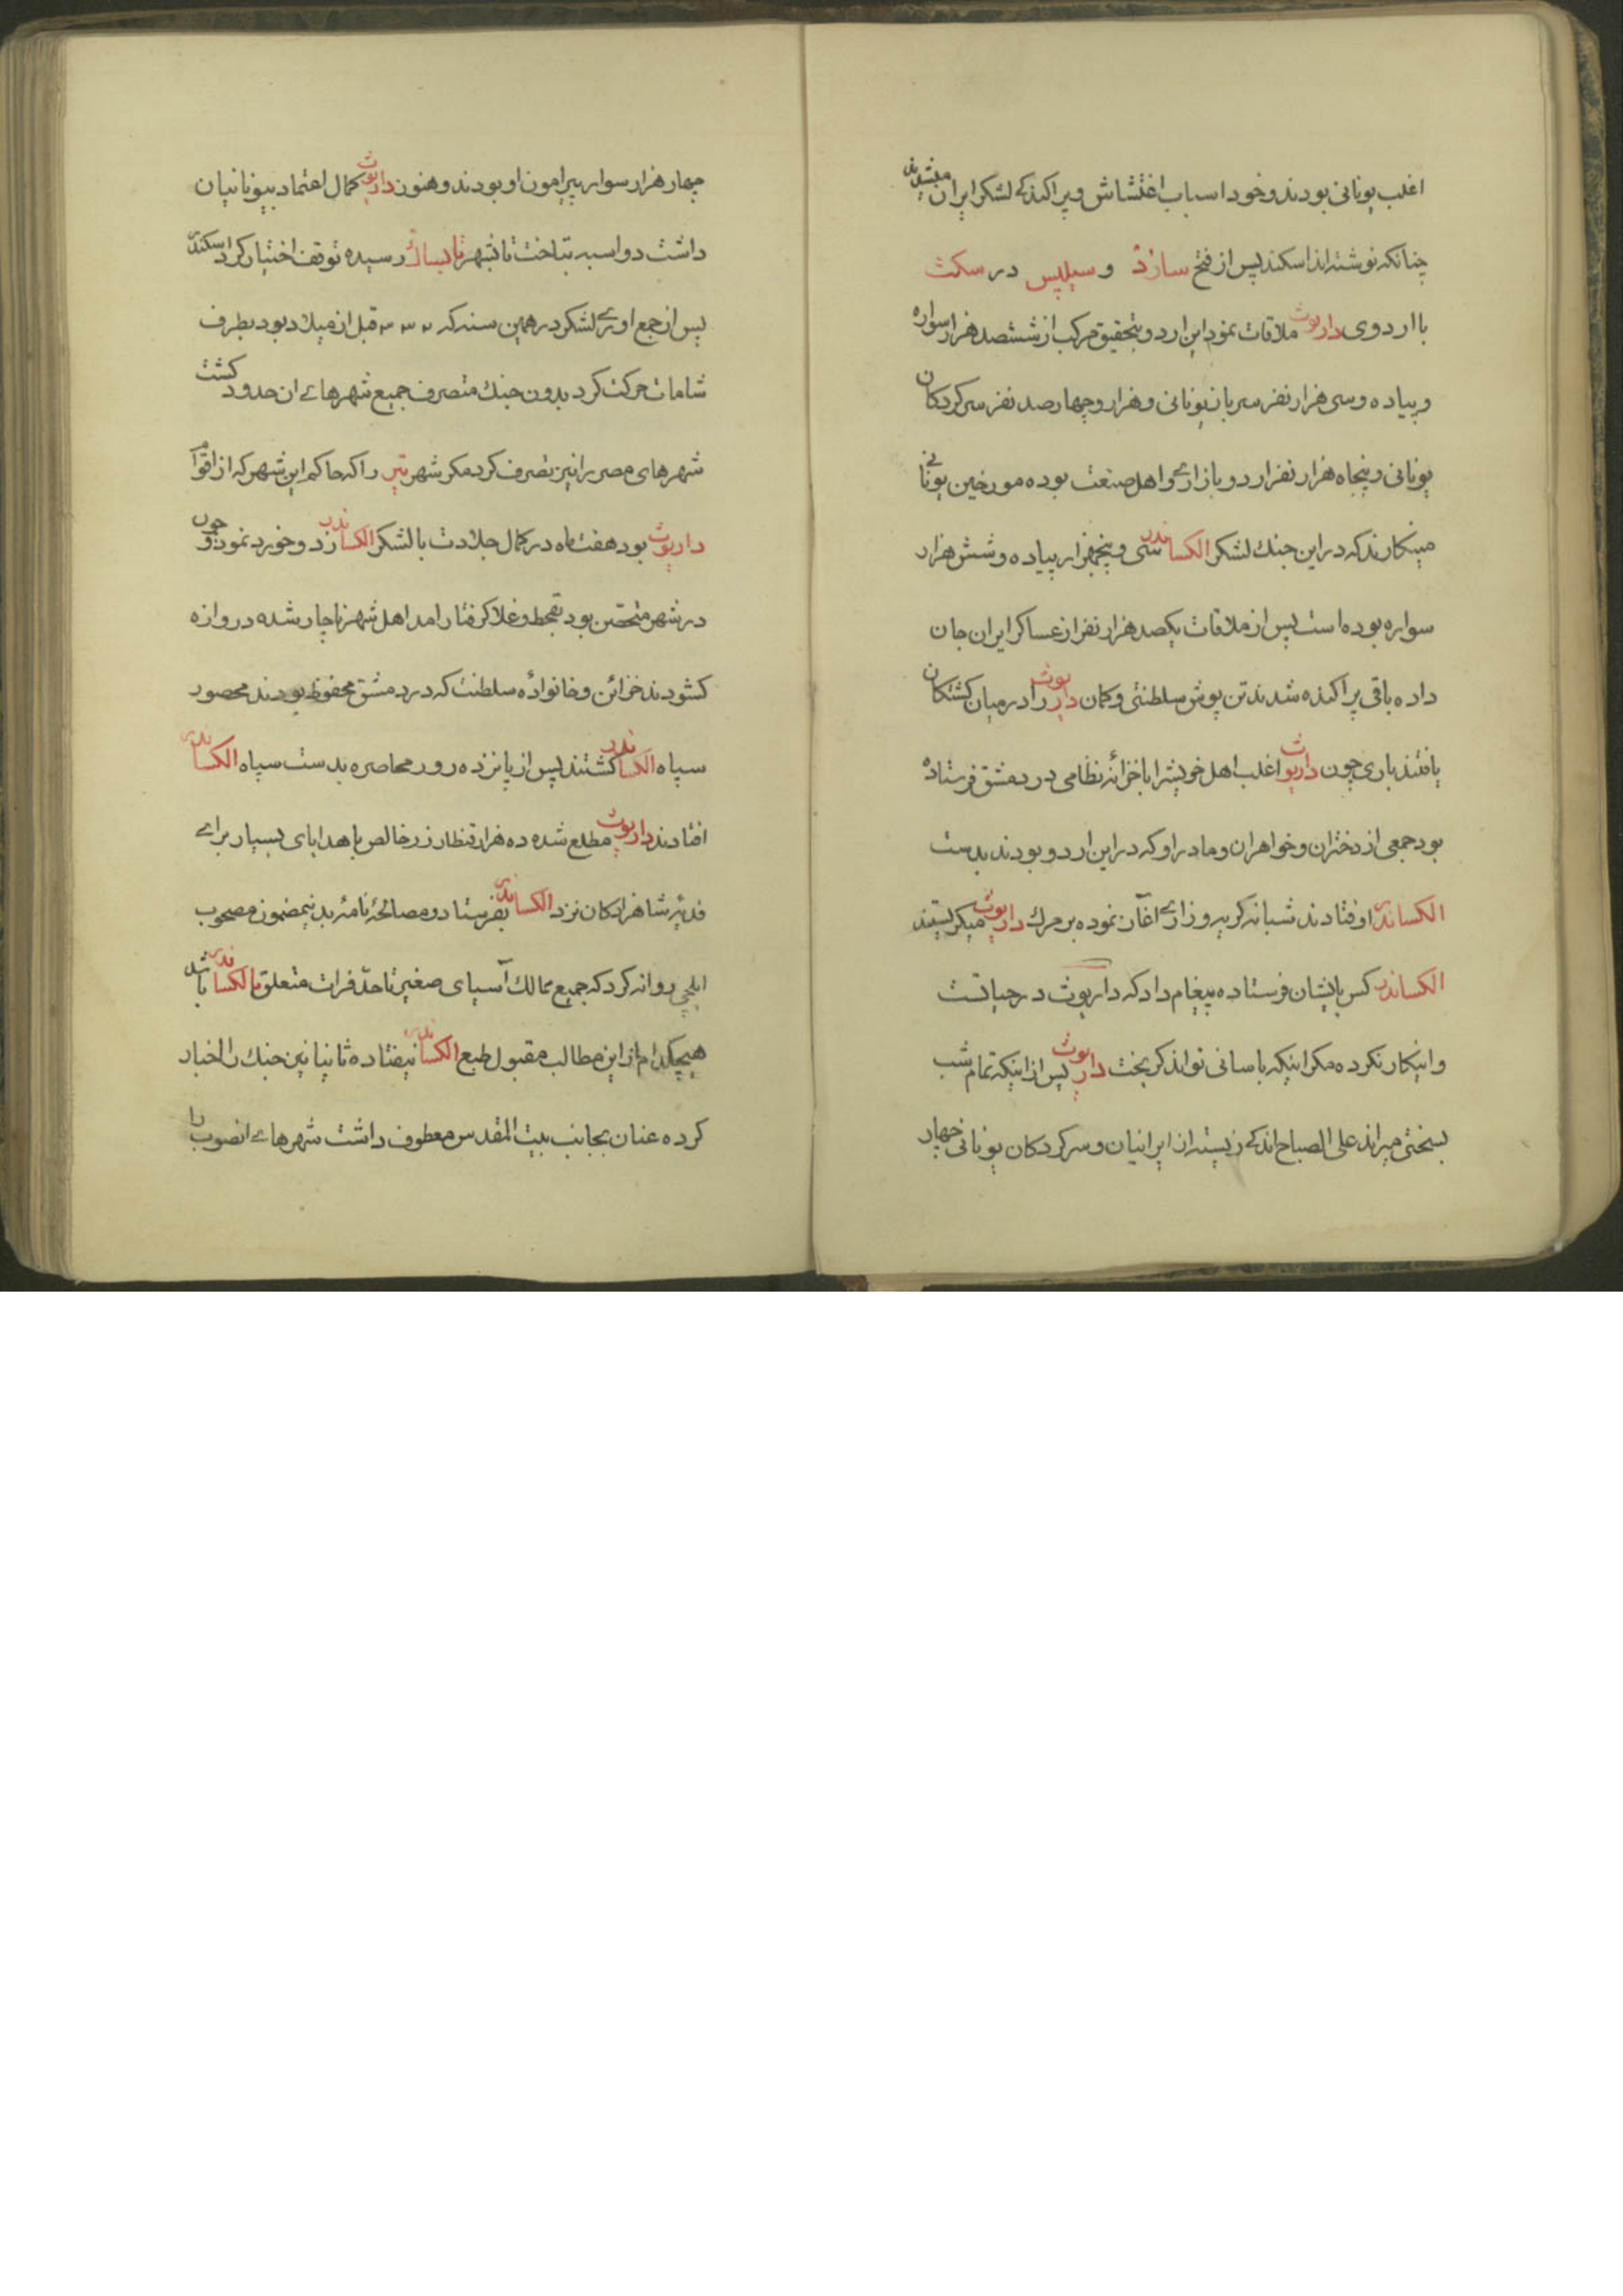 اغلب یونانی بودند و خود اسباب اغتشاش و پراکندکی لشکر ایران میشدند
چنانکه نوشته‌اند اسکندر پس از فتح سارد و سیلیس در سکت
با اردوی داریوث ملاقات نمود این اردو بتحقیق مرکب از ششصد هزار سواره
و پیاده و سی هزار نفر سرباز یونانی و هزار و چهارصد نفر سرکردکان
یونانی و پنجاه هزار نفر اردو بازاری و اهل صنعت بوده مورخین یونانی
مینکارند که در این جنك لشکر الکساندر سی و پنجهزار پیاده و شش هزار
سواره بوده است پس از ملاقات یکصد هزار نفر از عساکر ایران جان
داده باقی پراکنده شدند تن پوش سلطنتی و کمان داریوث را در میان کشتکان
یافتند باری چون داریوث اغلب اهل خویش را با خزانه نظامی در دمشق فرستاده
بود جمعی از دختران و خواهران و مادر او که در این اردو بودند بدست
الکساندر اوفتادند شبانه کریه و زاری آغاز نموده بر مرك داریوث میکریستند
الکساندر کس بایشان فرستاده پیغام داد که داریوث در حیاتست
و اینکار نکرده مکر اینکه باسانی تواند کریخت داریوث پس از اینکه تمام شب
بسختی میراند علی الصباح اندکی زیسته از ایرانیان و سرکردکان یونانی چهار
چهار هزار سوار پیرامون او بودند و هنوز داریوث کمال اعتماد بیونانیان
داشت دو اسبه بتاخت تا بشهر تابساك رسیده توقف اختیار کرد اسکندر
پس از جمع اوری لشکر در همین سنه که ۳۳۲ قبل از میلاد بود بطرف
شامات حرکت کرد بدون جنك متصرف جمیع شهرهای ان حدود کشت
شهرهای مصر را نیز تصرف کرد مکر شهر تیر را که حاکم این شهر که از اقوام
داریوث بود هفت ماه در کمال جلادت با لشکر الکساندر زد و خورد نمود و چون
در شهر متحصن بود بقحط و غلا کرفتار امد اهل شهر ناچار شده دروازه
کشودند خزائن و خانواده سلطنت که در دمشق محفوظ بودند محصور
سپاه الکساندر کشتند پس از پانزده روز محاصره بدست سپاه الکساندر
افتادند داریوث مطلع شده ده هزار قنطار زر خالص با هدایای بسیار برای
فدیه شاهزادکان نزد الکساندر بفرستاد و مصالحه نامهٔ بدینمضمون مصحوب
ایلچی روانه کرد که جمیع ممالك آسیای صغیر تا حد فرات متعلق بالکساندر باشد
هیچکدام از این مطالب مقبول طبع الکساندر نیفتاده ثانیا نیز جنك را اختیار
کرده عنان بجانب بیت المقدس معطوف داشت شهرهای انصوب را